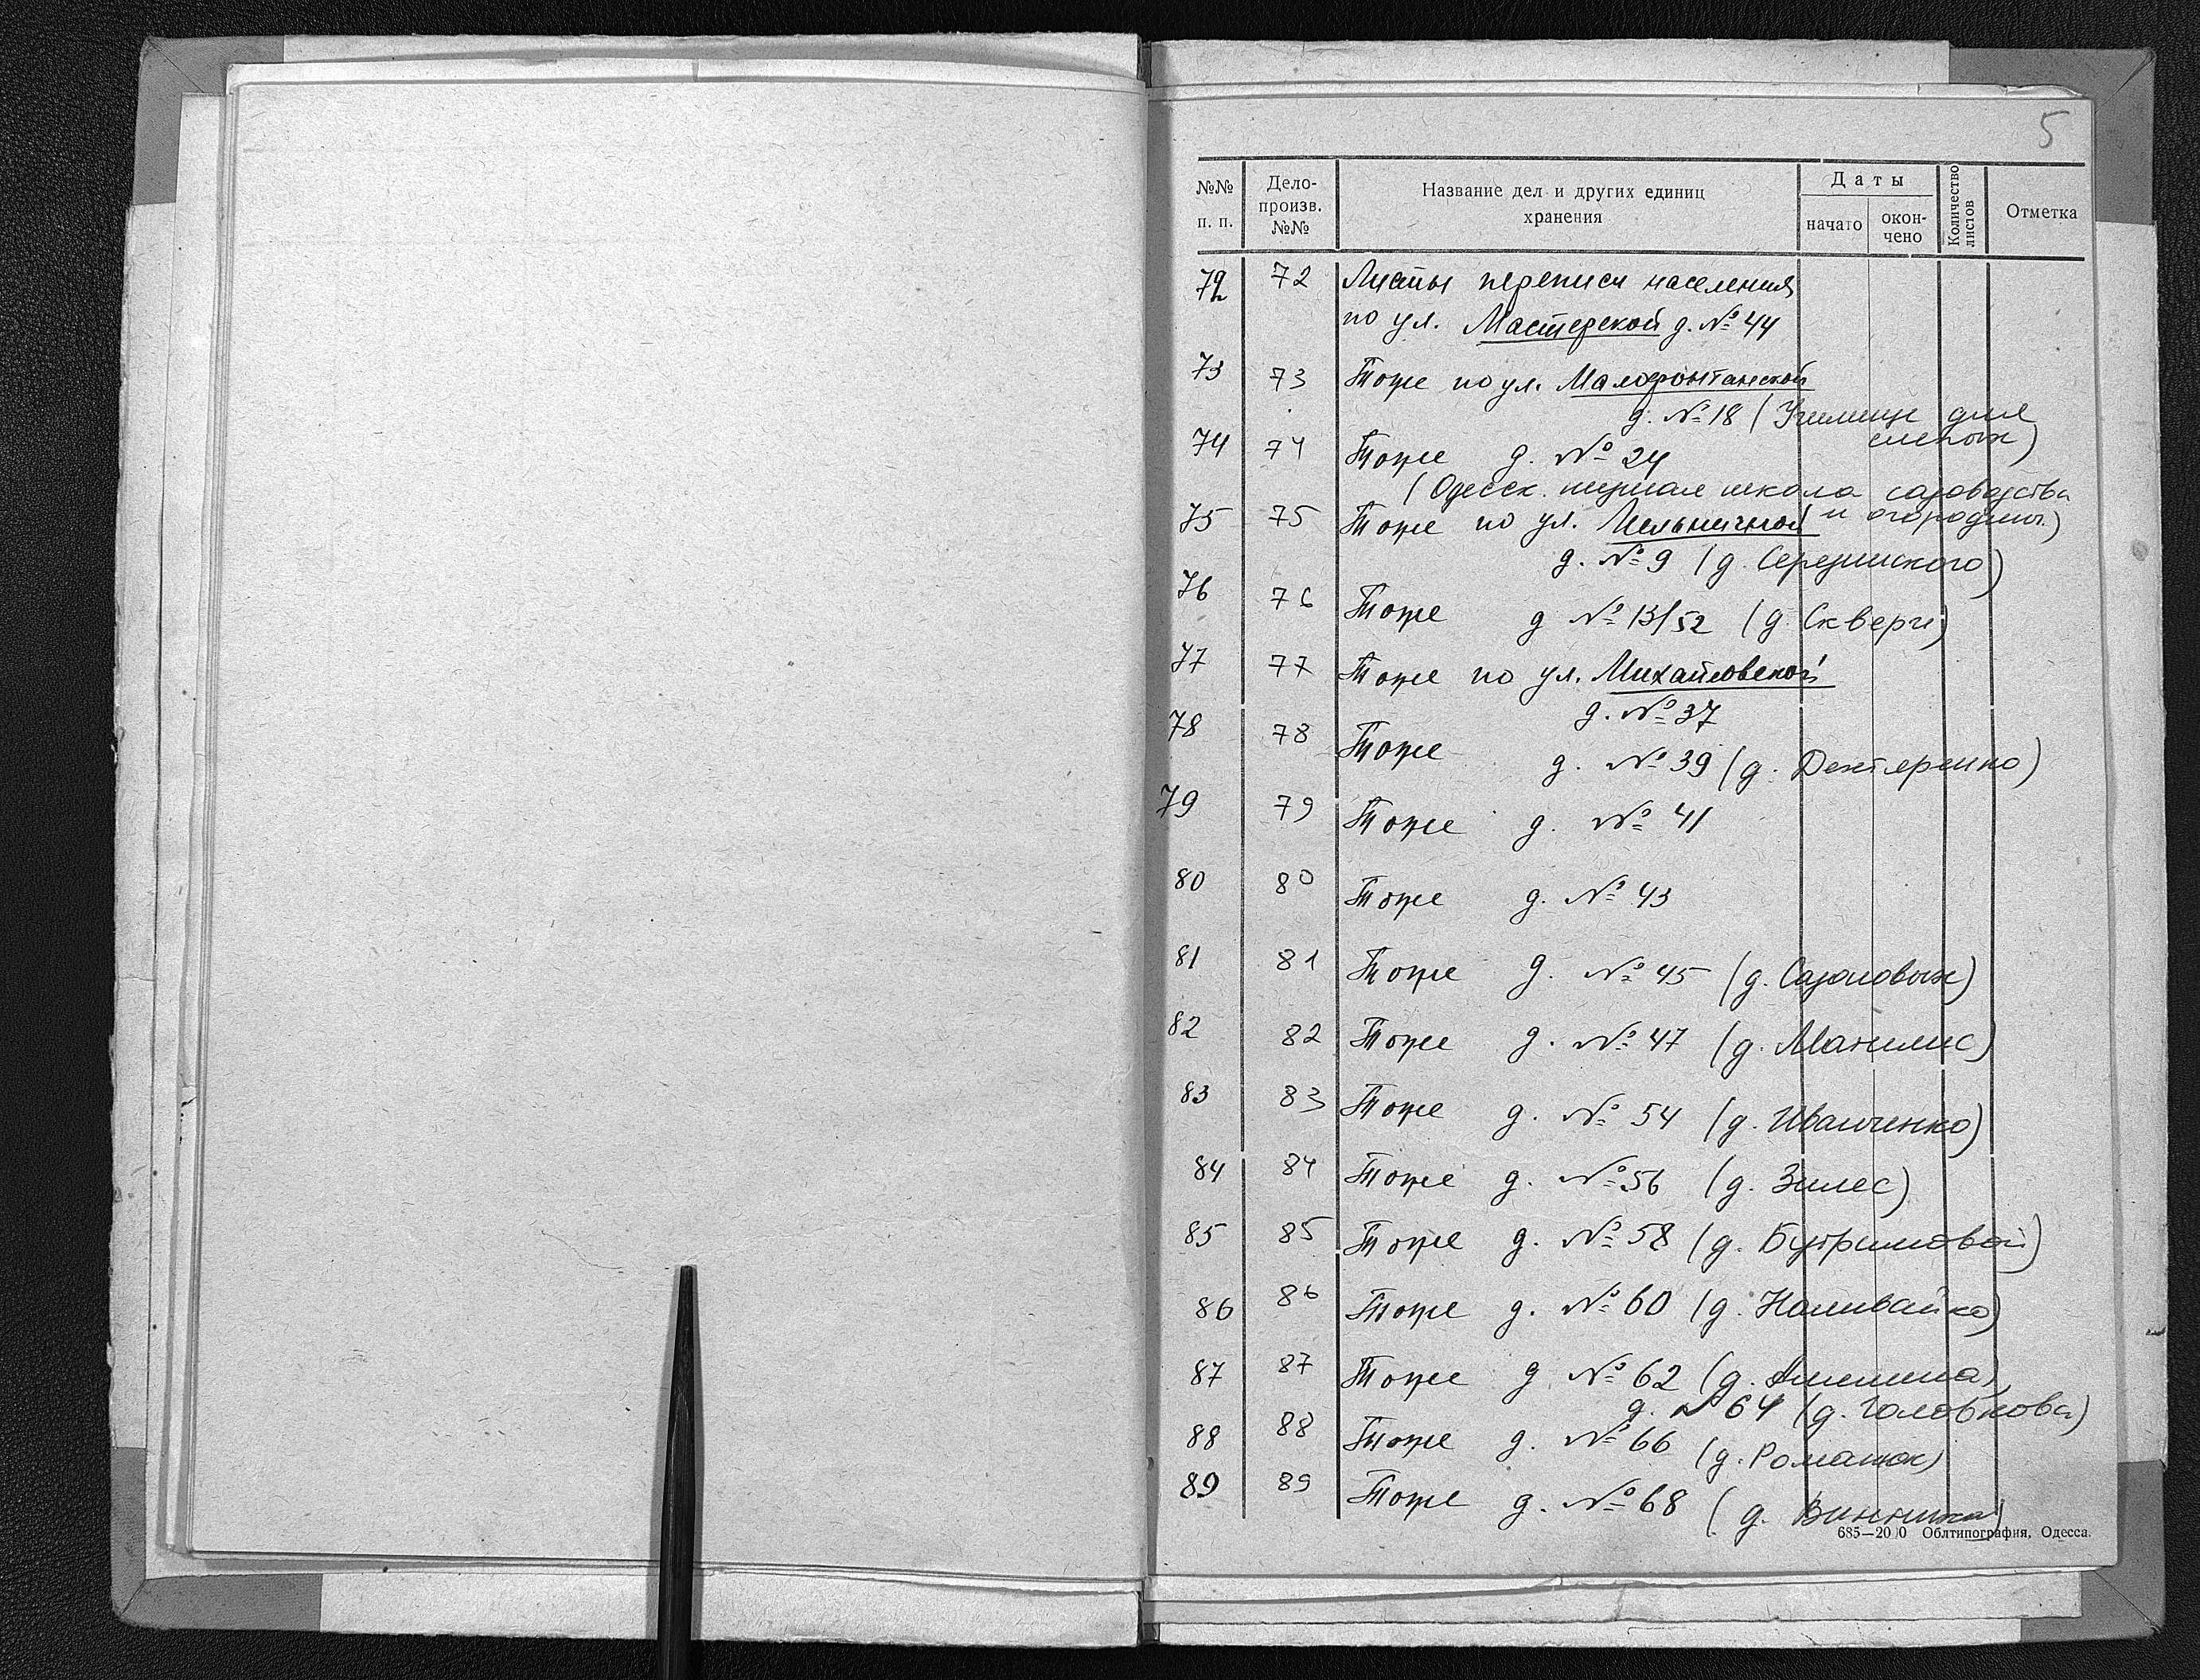 5
№№ п. п.
Дело-произв. №№
Название дел и других единиц хранения
Даты
начато
окон-чено
Количество листов
Отметка
72 72 Листы переписи населения
по ул. Мастерской д. № 44
73 73 Тоже по ул. Малофонтанской
д. № 18 (Училище для
слепых)
74 74 Тоже д. № 24
(Одесск. школа садоводства
и огородн.)
75 75 Тоже по ул. Мельничной
д. № 9 (д. )
76 76 Тоже д № 13/52 (д. Скверч)
77 77 Тоже по ул. Михайловской
д. № 37
78 78 Тоже д. № 39 (д. Дехтяренко)
79 79 Тоже д. № 41
80 80 Тоже д. № 43
81 81 Тоже д. № 45 (д. )
82 82 Тоже д. № 47 (д. Манилис)
83 83 Тоже д. № 54 (д. Иванченко)
84 84 Тоже д. № 56 (д. Зилес)
85 85 Тоже д. № 58 (д. Бутримовой)
86 86 Тоже д. № 60 (д. Наливайко)
87 87 Тоже д № 62 (д. )
д. № 64 (д. Головкова)
88 88 Тоже д. № 66 (д. Романюк)
89 89 Тоже д. № 68 (д. )
685—2000 Облтипография, Одесса.